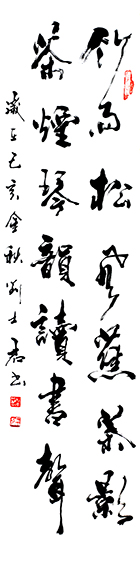 竹雨松風蕉葉影
茶煙琴韻讀書聲
歲在己亥金秋劉士君書